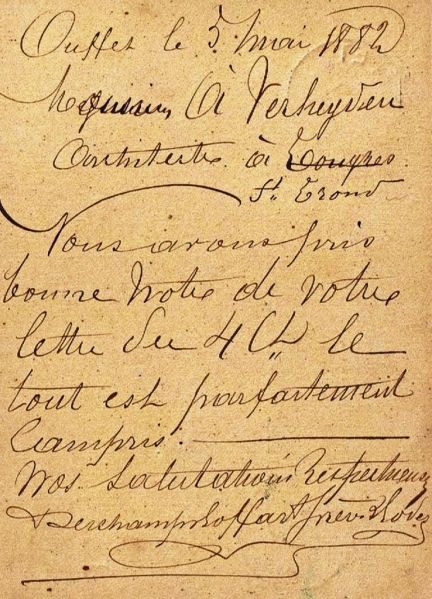 Ouffet le 5 mai 1882
Monsieur A Verheyden
Architecte à Tongres
St. Trond
Nous avons pris
bonne Note de votre
lettre du 4 Ct le
tout est parfaitement
Compris.
Nos salutations Respectueuses